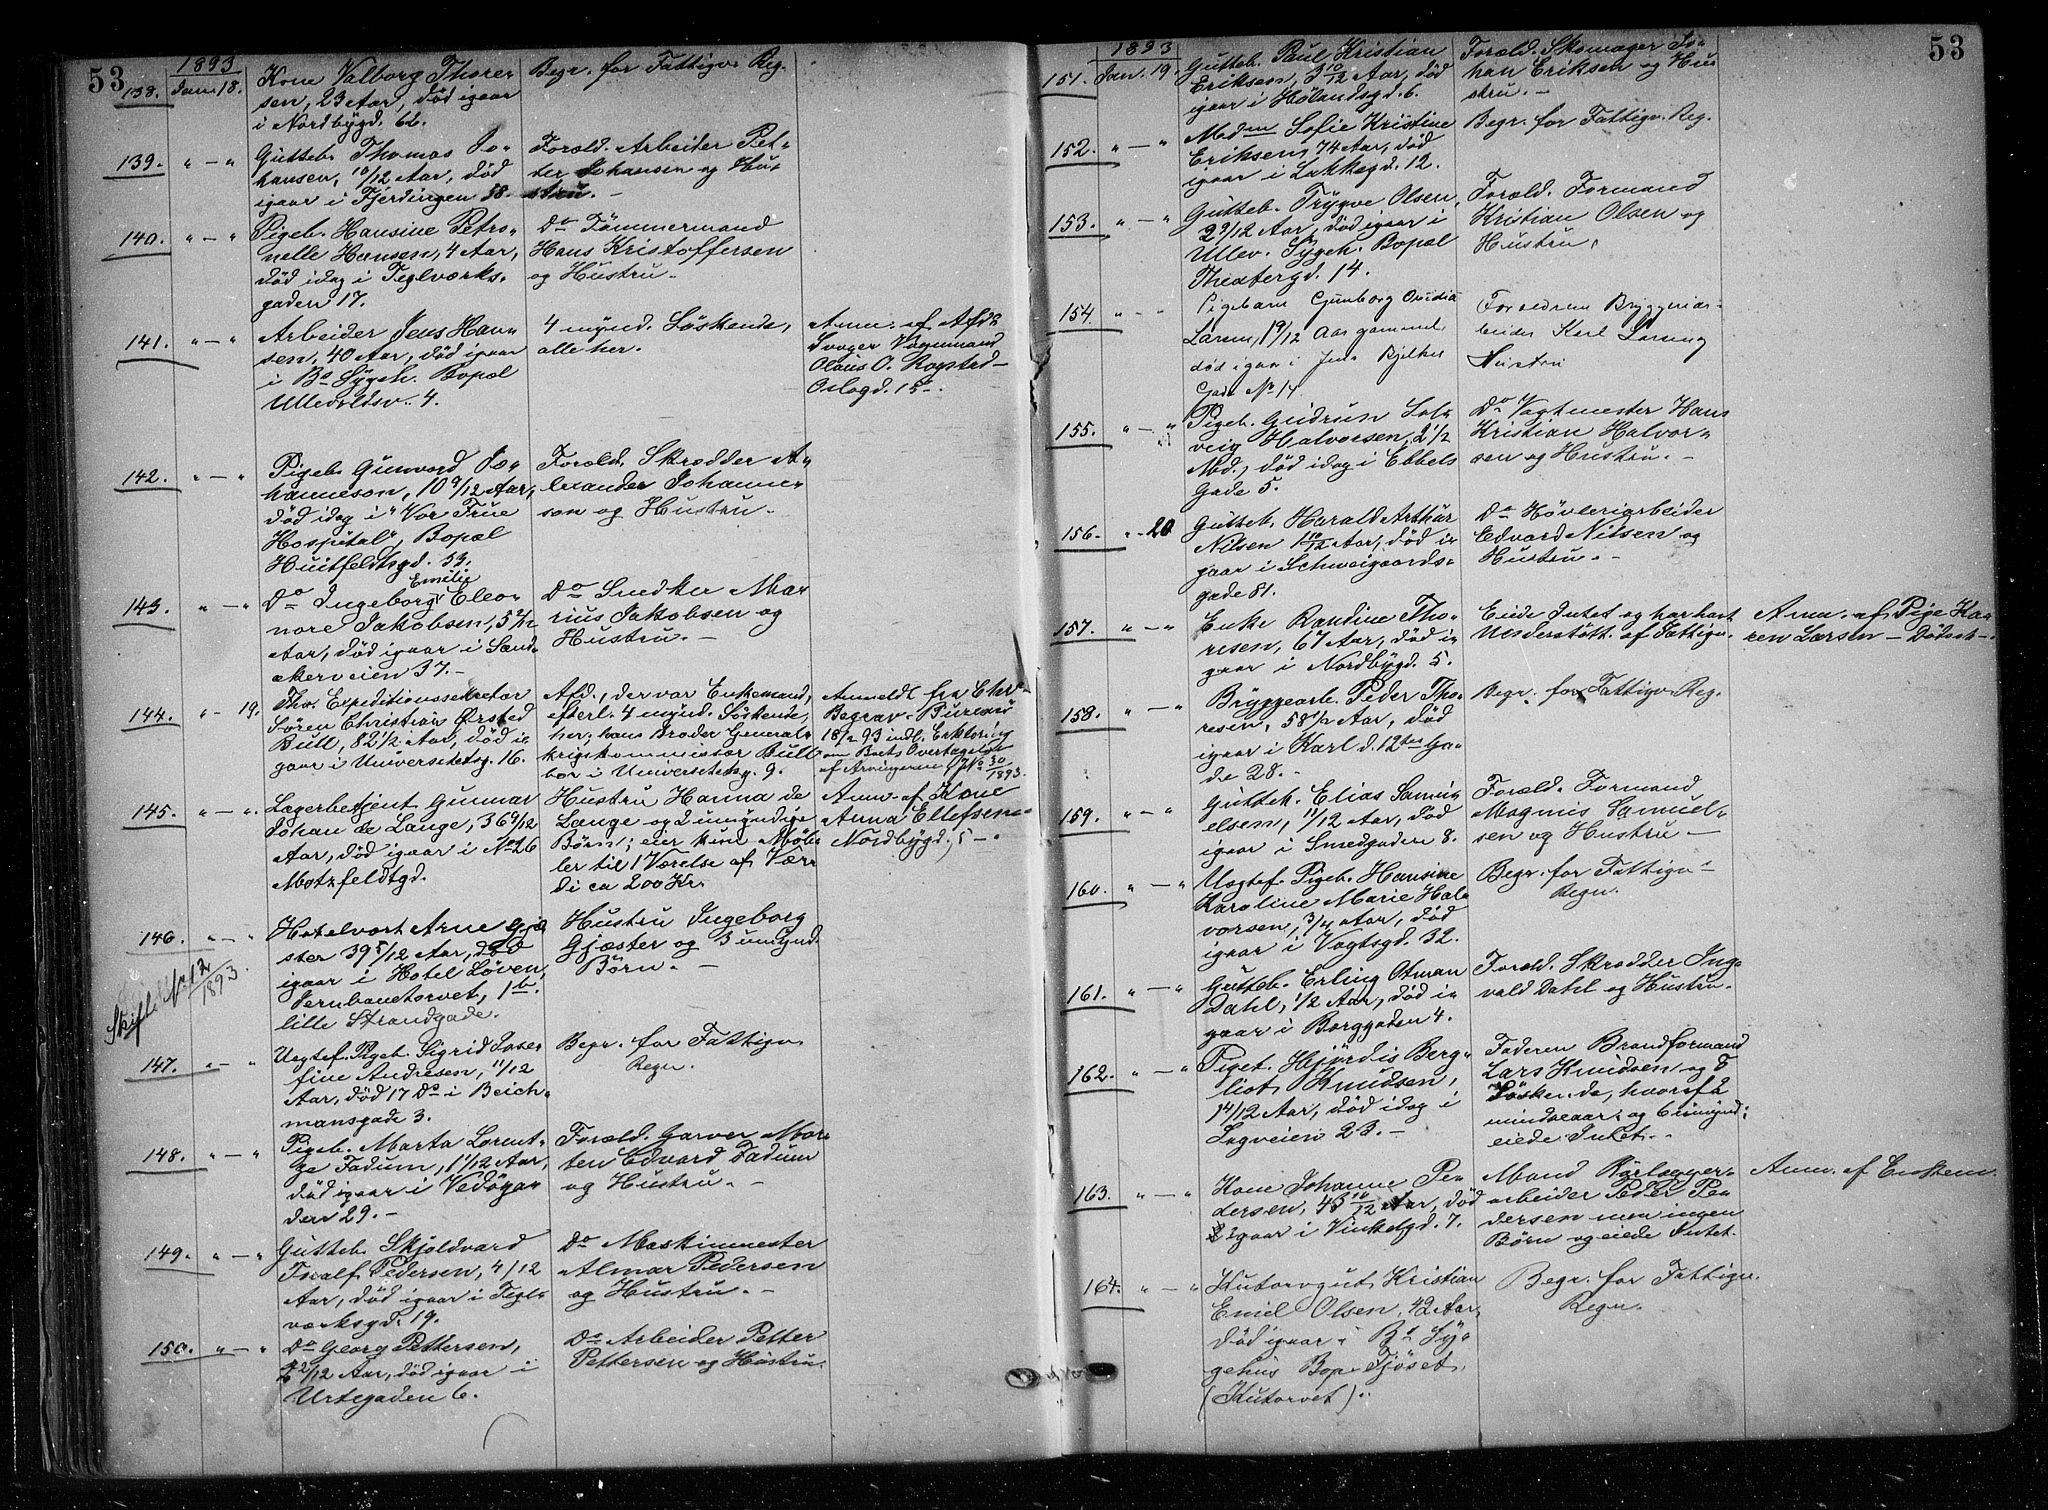 53
1893
138. Jan. 18. Kone Valborg Thore-
sen, 23 Aar, død igaar
i Nordbygd. 62.
Begr. for Fattigv. Reg.
139. " — " Gutteb. Thomas Jo-
hansen, 10/12 Aar, død
igaar i Fjerdingen 58.
Foræld. Arbeider Pet-
ter Johansen og Hu-
stru. —
140. " — " Pigeb. Hansine Petro-
nelle Hansen, 4 Aar,
død idag i Teglværks-
gaden 17.
Do Tømmermand
Hans Kristoffersen
og Hustru. —
141. " — " Arbeider Jens Han-
sen, 40 Aar, død igaar
i By Sygeh. Bopæl
Ullevoldsv. 4.
4 mynd. Søskende,
alle her.
Anm. af Afd's
Svoger Vognmand
Olaus O. Rogstad —
Oslogd. 15.
142. " — " Pigeb. Gunvord Jo-
hanneson, 10 9/12 Aar,
død idag i "Vor Frue
Hospital", Bopæl
Huitfeldtsgd. 53.
Foræld. Skrædder A-
lexander Johanne-
son og Hustru. —
143. " — " Do Ingeborg Emilie Eleo-
nore Jakobsen, 5 2/12
Aar, død igaar i Sand-
akerveien 37. —
Do Snedker Ma-
rius Jakobsen og
Hustru. —
144. " — 19. Fhv. Expeditionssekretær
Søren Christian Ørsted
Bull, 82 1/2 Aar, død i-
gaar i Universitetsg. 16.
Afd., der var Enkemand,
efterl. 4 mynd. Søskende,
her; hans Broder General-
krigskommissær Bull
bor i Universitetsg. 9.
Anmeldt fra Chr.
Begrav. Bureau
18/1 93 indl. Erklæring
om Boets Overtagelse
af Arvingerne JNo 30/1893.
145. " — " Lagerbetjent Gunnar
Johan de Lange, 36 9/12
Aar, død igaar i No 26
Motzfeldtgd.
Hustru Hanna de
Lange og 2 umyndige
Børn; eier kun Møb-
ler til 1 Værelse af Vær-
di ca 200 Kr.
Anm. af Kone
Anna Ellefsen —
Nordbygd. 5 —.
146. " — " Hotelvært Arne Gjæ-
ster 39 5/12 Aar, død
igaar i Hotel Løven,
Jernbanetorvet, 1b.
lille Strandgade.
Hustru Ingeborg
Gjæster og 3 umynd.
Børn. —
Skifte No 12/1893.
147. " — " Uægtef. Pigeb. Sigrid Jose-
fine Andresen, 11/12
Aar, død 17 Ds i Beich-
mansgade 3.
Begr. for Fattigv.
Regn.
148. " — " Pigeb. Marta Lorent-
ze Fadum, 1 1/12 Aar,
død igaar i Vedøga-
den 29. —
Foræld. Garver Mor-
ten Edvard Fadum
og Hustru. —
149. " — " Gutteb. Skjoldvard
Toralf Pedersen, 4/12
Aar, død igaar i Tegl-
værksgd. 19.
Do Maskinmester
Almar Pedersen
og Hustru. —
150. " — " Do Georg Pettersen,
2/12 Aar, død igaar i
Urtegaden 6.
Do Arbeider Petter
Pettersen og Hustru.
53
1893
151. Jan. 19. Gutteb. Paul Kristian
Eriksen, 3 10/12 Aar, død
igaar i Hølandsgd. 6.
Foræld. Skomager Jo-
han Eriksen og Hu-
stru. —
152. " — " Madm Sofie Kristine
Eriksen, 74 Aar, død
igaar i Lakkegd. 12.
Begr. for Fattigv. Reg.
153. " — " Gutteb. Trygve Olsen,
2 9/12 Aar, død igaar i
Ullev. Sygeh. Bopæl
Theatergd. 14.
Foræld. Formand
Kristian Olsen og
Hustru.
154. " — " Pigebarn Gunborg Ovidia
Larsen, 1 9/12 Aar gammel
død igaar i Jens Bjelkes
Gade No 14
Forældrene Bryggeriar-
beider Karl Larsen og
Hustru
155. " — " Pigeb. Gudrun Sol-
veig Halvorsen, 2 1/2
Md., død idag i Ebbels
Gade 5.
Do Vagtmester Hans
Kristian Halvor-
sen og Hustru. —
156. " - 20 Gutteb. Harald Arthur
Nilsen 1 10/12 Aar, død i-
gaar i Schweigaards-
gade 81.
Do Høvleriarbeider
Edvard Nilsen og
Hustru. —
157. " — " Enke Randine Tho-
resen, 67 Aar, død i-
gaar i Nordbygd. 5.
Eiede Intet og har havt
Understøtt. af Fattigv.
Anm. af Pige Ka-
ren Larsen — Dødsst —.
158. " — " Bryggearb. Peder Tho-
resen, 58 1/2 Aar, død
igaar i Karl d. 12tes Ga-
de 28. —
Begr. for Fattigv. Reg.
159. " — " Gutteb. Elias Samu-
elsen, 11/12 Aar, død
igaar i Smedgaden 8.
Foræld. Formand
Magnus Samuel-
sen og Hustru —
160. " — " Uægtef. Pigeb. Hansine
Karoline Marie Hal-
vorsen, 3/4 Aar, død
igaar i Vogtsgd. 32.
Begr. for Fattigv.
Regn.
161. " — " Gutteb. Erling Otman
Dahl, 1/2 Aar, død i-
gaar i Borggaden 4.
Foræld. Skrædder Ing-
vald Dahl og Hustru. —
162. " — " Pigeb. Hjørdis Berg-
liot Knudsen,
1 4/12 Aar, død idag i
Sagveien 23. —
Faderen Brandformand
Lars Knudsen og 8
Søskende, hvoraf 2
mindreaar. og 6 umynd.;
eiede Intet. —
163. " — " Kone Johanne Pe-
dersen, 43 10/12 Aar, død
igaar i Vinkelgd. 7.
Mand Rørlægger-
arbeider Peder Pe-
dersen men ingen
Børn og eiede Intet.
Anm. af Enkem.
164. " — " Kutorvgut Kristian
Emil Olsen, 42 Aar,
død igaar i By Sy-
gehus Bop. Fjøset
(Kutorvet).
Begr. for Fattigv.
Regn.